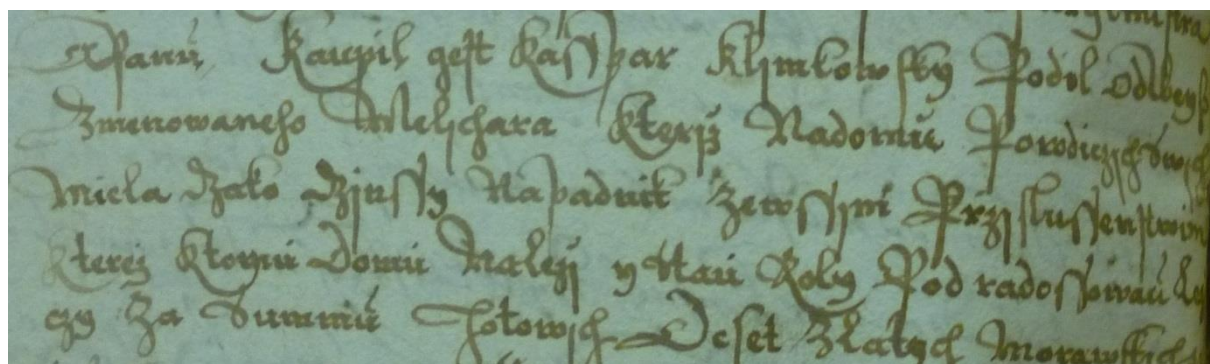 Panu, Kaupil gest Kasspar Klimkowsky Podil Odbeyss
Zmenowaneho Melichara kteryz Nadomu Powdiczych
Miela Jako Jinssy Napadnik Zewssym Przislussenstwim
kterez ktomu Domu Nalezi y Stau Roly Pod radossowau
czy Za Summu hotowych Deset Zlatych Morawskych